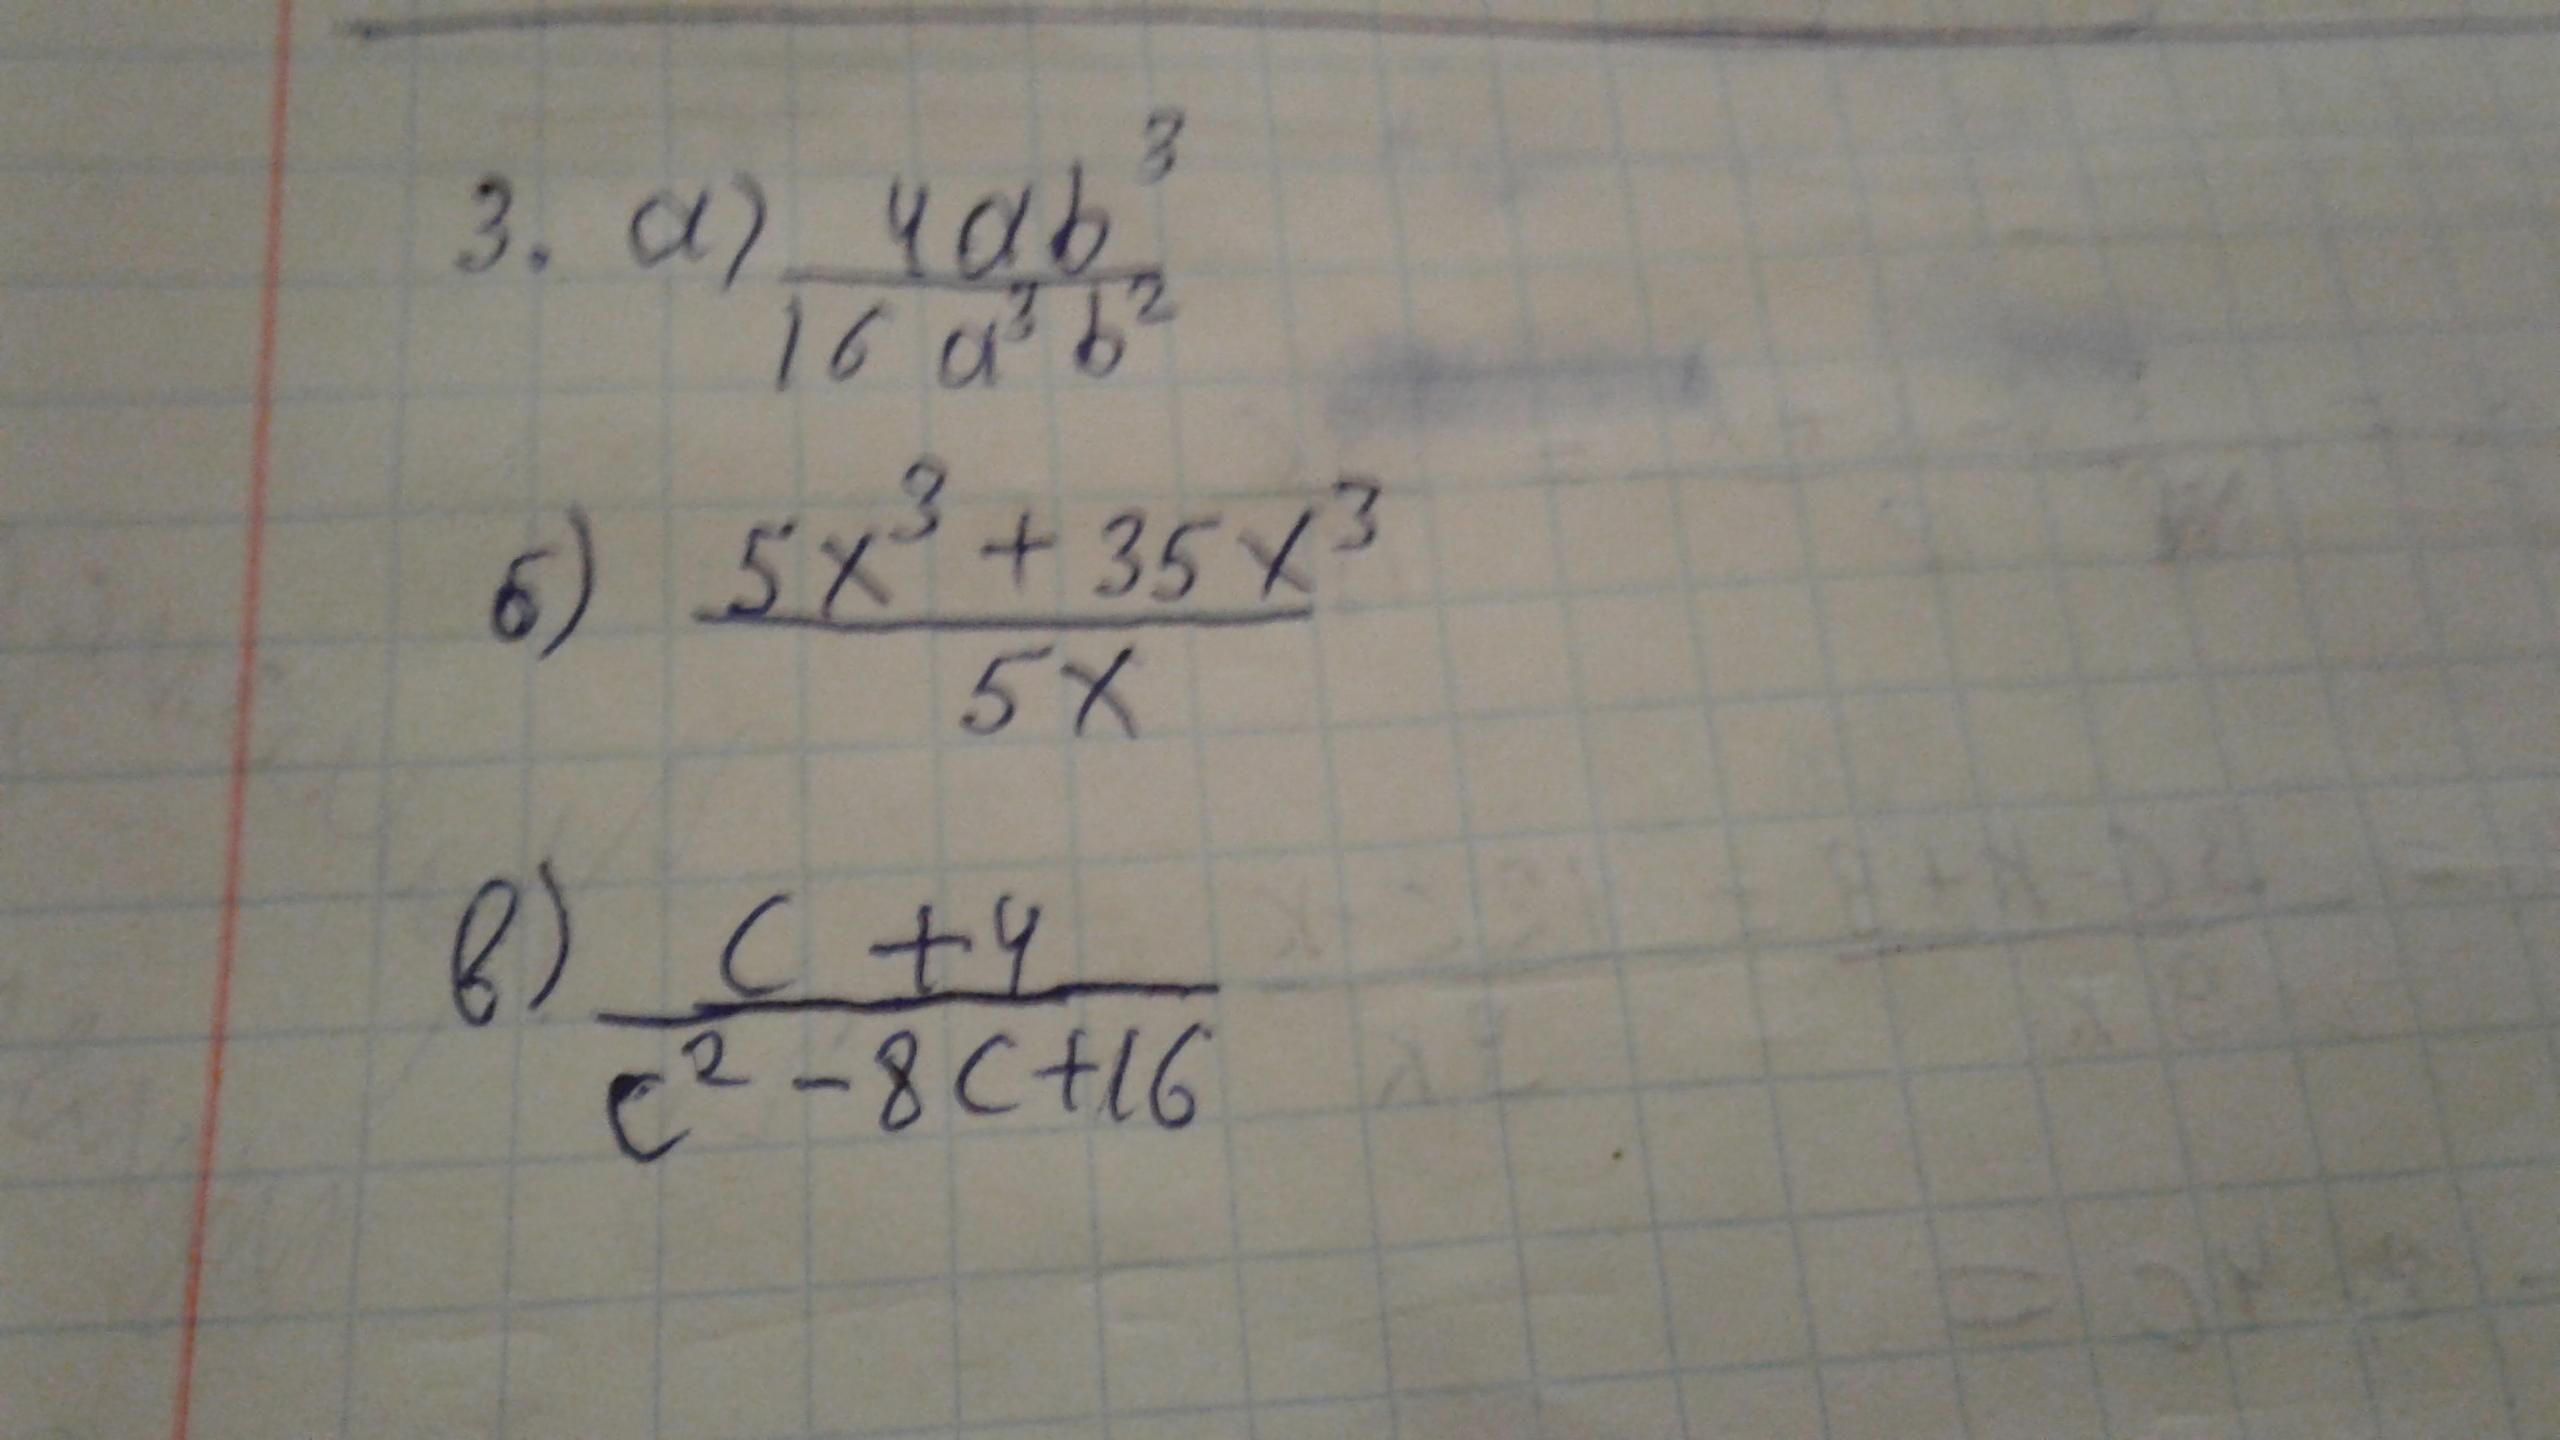 3. а) 4ab³
16a³b²
б) 5x³ + 35x³
5x
в) c + 4
c² - 8c + 16